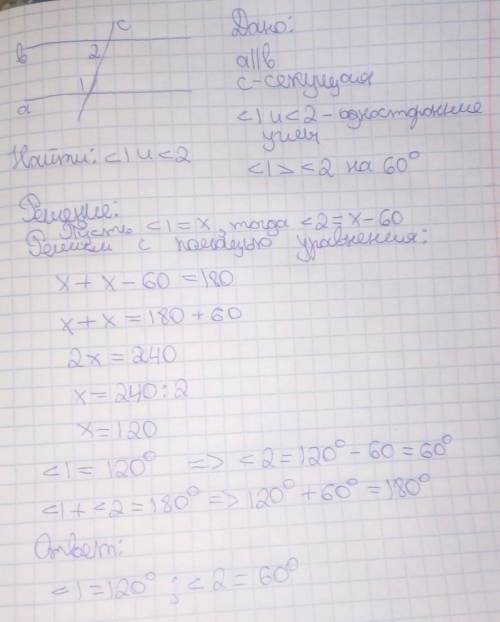 c
Дано:
b
2
a||b
c-секущая
1
a
<1 и <2 - односторонние
углы
Найти: <1 и <2
<1 > <2 на 60°
Решение:
Пусть <1 = x, тогда <2 = x - 60
Решаем с помощью уравнения:
x + x - 60 = 180
x + x = 180 + 60
2x = 240
x = 240 : 2
x = 120
<1 = 120° => <2 = 120° - 60 = 60°
<1 + <2 = 180° => 120° + 60° = 180°
Ответ:
<1 = 120° ; <2 = 60°